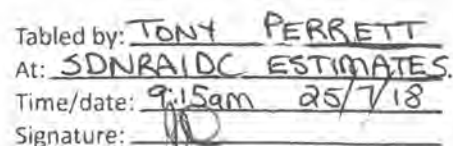 Tabled by: TONY PERRETT
At: SDNRAIDC ESTIMATES.
Time/date: 9:15am 25/7/18
Signature: